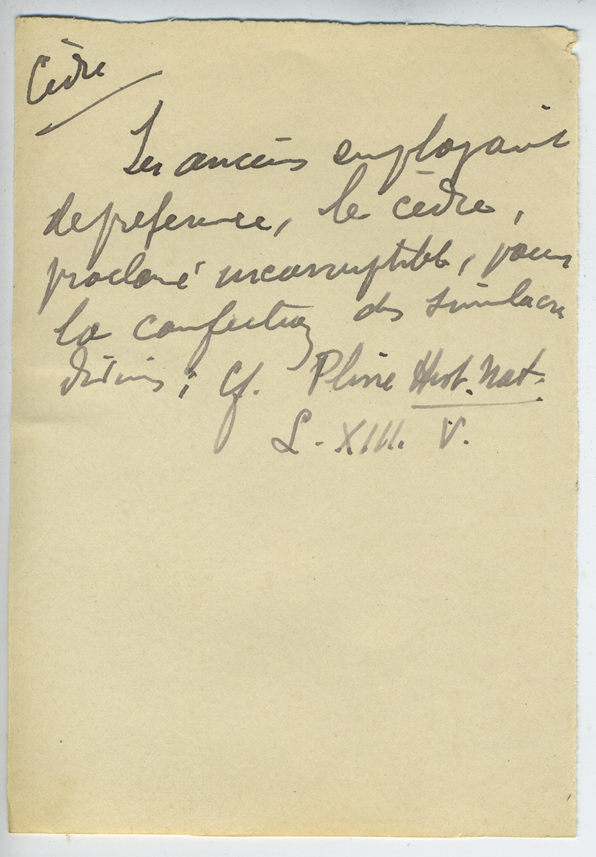 Cèdre
Les anciens employaient
de préférence, le cèdre,
proclamé incorruptible, pour
la confection des simulacres
divins ; Cf. Pline Hist. Nat.
L. XIII. V.